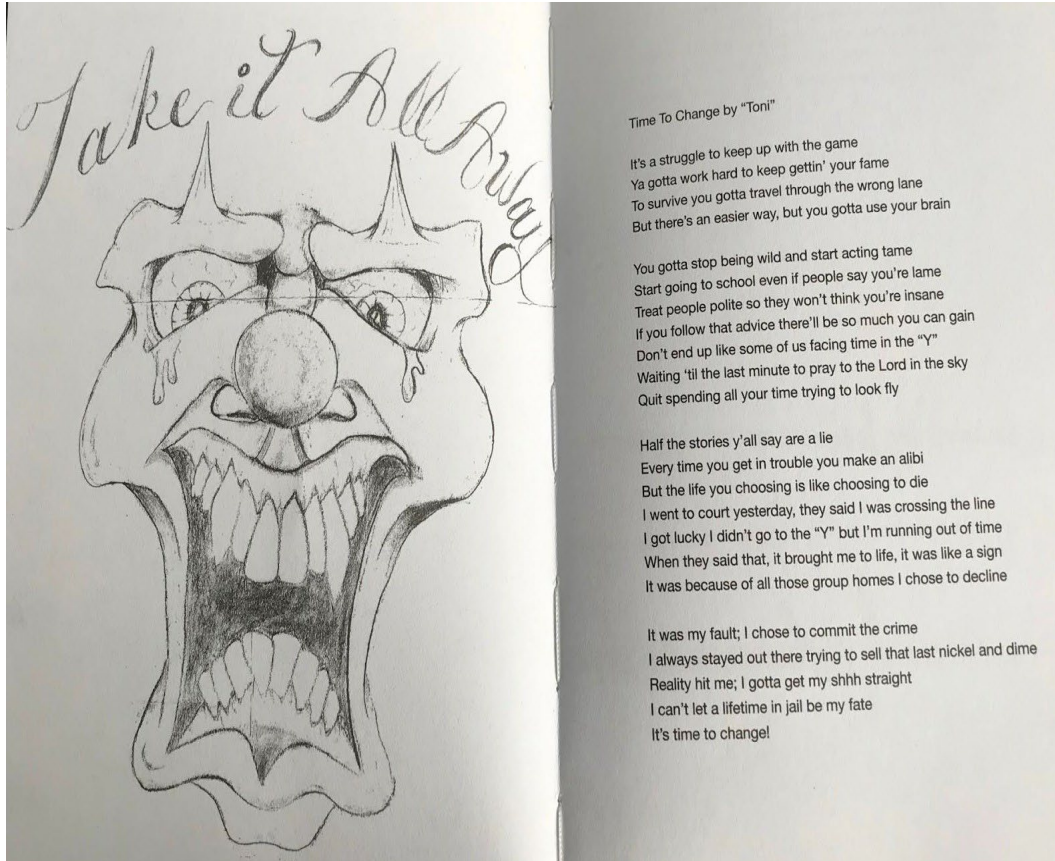 Take it All Away
Time To Change by “Toni”
It's a struggle to keep up with the game
Ya gotta work hard to keep gettin' your fame
To survive you gotta travel through the wrong lane
But there's an easier way, but you gotta use your brain
You gotta stop being wild and start acting tame
Start going to school even if people say you're lame
Treat people polite so they won't think you're insane
If you follow that advice there'll be so much you can gain
Don't end up like some of us facing time in the “Y”
Waiting ‘til the last minute to pray to the Lord in the sky
Quit spending all your time trying to look fly
Half the stories y'all say are a lie
Every time you get in trouble you make an alibi
But the life you choosing is like choosing to die
I went to court yesterday, they said I was crossing the line
I got lucky I didn't go to the “Y” but I'm running out of time
When they said that, it brought me to life, it was like a sign
It was because of all those group homes I chose to decline
It was my fault; I chose to commit the crime
I always stayed out there trying to sell that last nickel and dime
Reality hit me; I gotta get my shhh straight
I can't let a lifetime in jail be my fate
It's time to change!